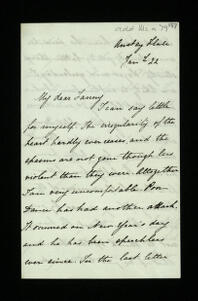 Jan 2 22
My dear Fanny
I can say little
for myself. The irregularity of the
heart hardly ever ceases and the
spasms are not gone though less
violent than they were. Altogether
I am very uncomfortable. Poor
has had another attack.
It occurred on New Year's day
and he has been speechless
ever since. In the last letter